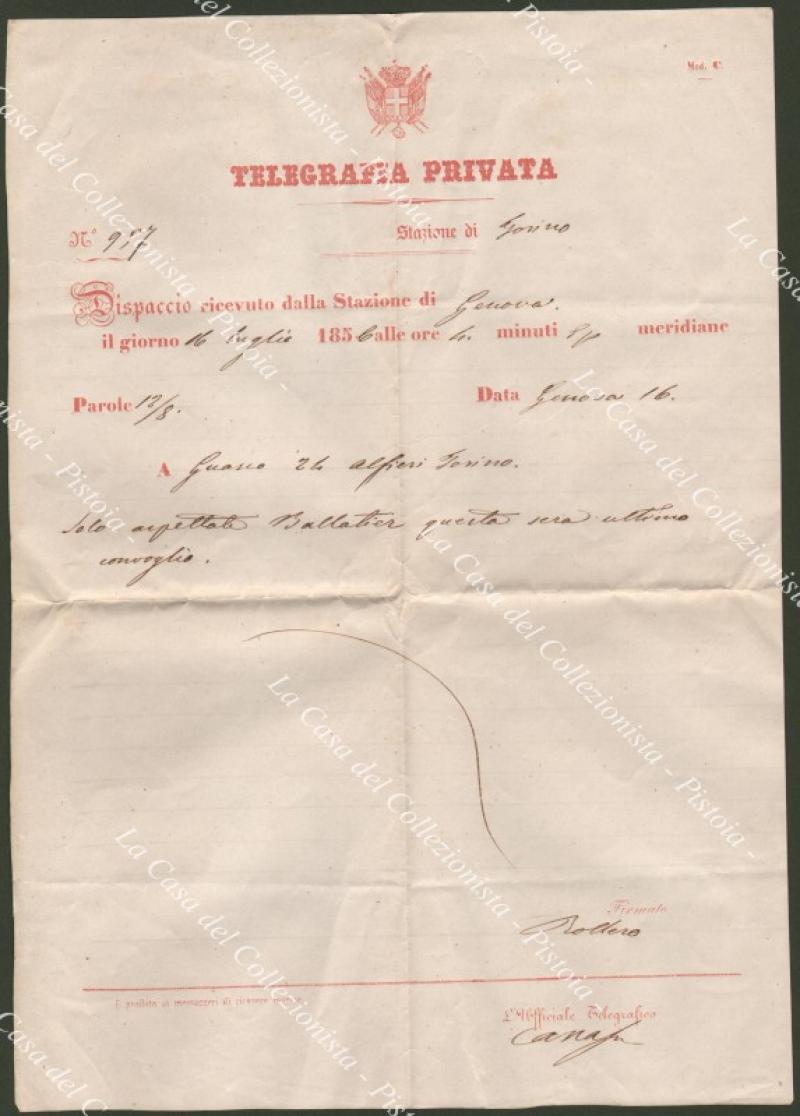 Mod. C.
TELEGRAFIA PRIVATA
N.° 957 Stazione di Torino
Dispaccio ricevuto dalla Stazione di Genova.
il giorno 16 luglio 1856 alle ore 4. minuti meridiane
Parole 12/8. Data Genova 16.
A Guasco 24 Alfieri Torino.
Solo aspettate Ballatier questa sera ultimo
convoglio.
Firmato
Rollero
È proibito ai messaggeri di ricevere mancie.
L'Uffiziale Telegrafico
La Casa del Collezionista - Pistoia -